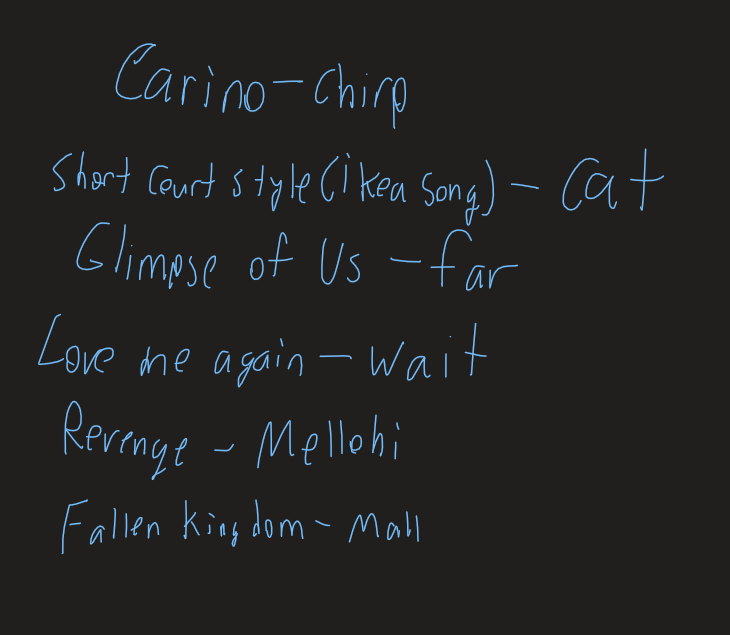 Carino - Chirp
Short Court style (ikea song) - Cat
Glimpse of Us - far
Love me again - wait
Revenge - Mellohi
Fallen kingdom - Mall